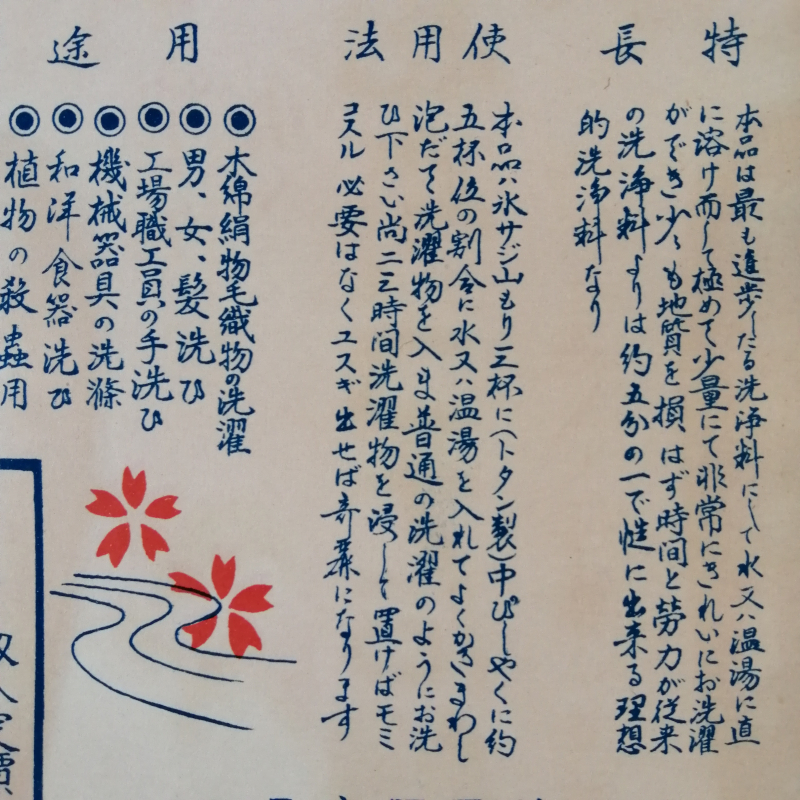 特長
本品は最も進歩したる洗浄料にして水又ハ温湯に直
に溶け而して極めて少量にて非常にきれいにお洗濯
ができ少しも地質を損はず時間と労力が従来
の洗浄料よりは約五分の一で燵に出来る理想
的洗浄料なり
使用法
本品ハ氷サジ山もり三杯に(トタン製)中びしやくに約
五杯位の割合に水又ハ温湯を入れてよくかきまわし
泡だて洗濯物を入ま普通の洗濯のようにお洗
ひ下さい尚二三時間洗濯物を浸して置けばモミ
コスル必要はなくユスギ出せば奇麗になります
用途
◉木綿絹物毛織物の洗濯
◉男、女、髪洗ひ
◉工場職工員の手洗ひ
◉機械器具の洗滌
◉和洋食器洗ひ
◉植物の殺蟲用